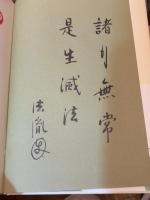 諸行無常
是生滅法
法胤